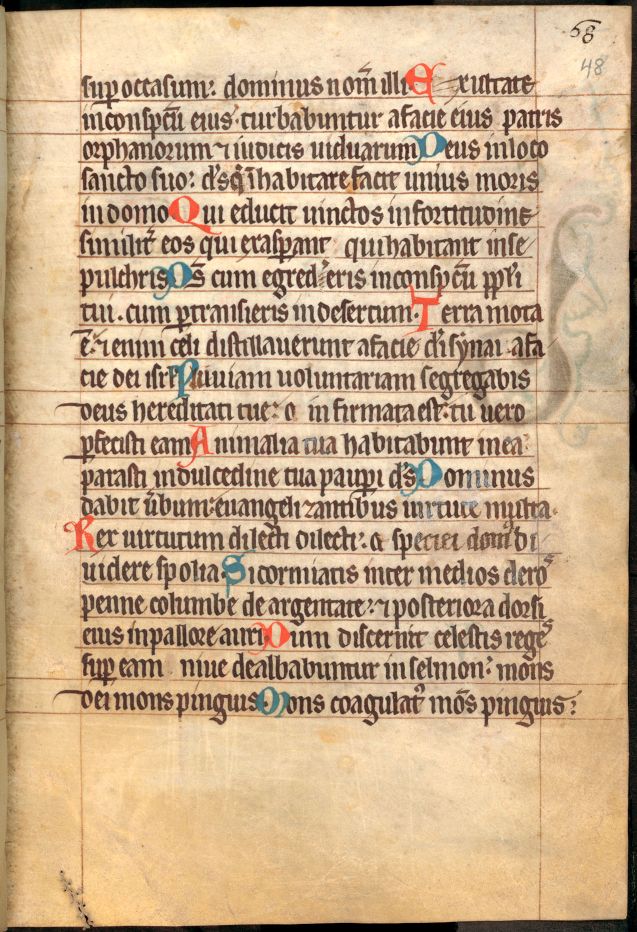 58
48
sup occasum: dominus nom̄ illi. Exultate
in conspc̄u eius turbabuntur a facie eius patris
orphanorum ⁊ iudicis uiduarum Deus in loco
sancto suo: d's q̄ inhabitare facit unius moris
in domo Qui educit uinctos in fortitudine
similit' eos qui exasp̄ant qui habitant in se
pulchris Ds̄ cum egred'eris in conspc̄u ppl'i
tui . cum p̄transieris in deserto Terra mota
ē: ⁊ enim celi distillauerunt a facie d'i synai . a fa
cie dei isrl' Pluuiam uoluntariam segregabis
deus hereditati tue: ⁊ infirmata est: tu uero
p̄fecisti eam Animalia tua habitabunt in ea:
parasti in dulcedine tua paup̄i d's Dominus
dabit ūbum: euangelizantibus uirtute multa.
Rex uirtutum dilecti dilecti: ⁊ speciei dom' di
uidere spolia. Si dormiatis inter medios clero's
penne columbe de argentate: ⁊ posteriora dorsi
eius in pallore auri. Dum discernit celestis rege's
sup eam niue dealbabuntur in selmon: mons
dei mons pinguis Mons coagulat' mōs pinguis: